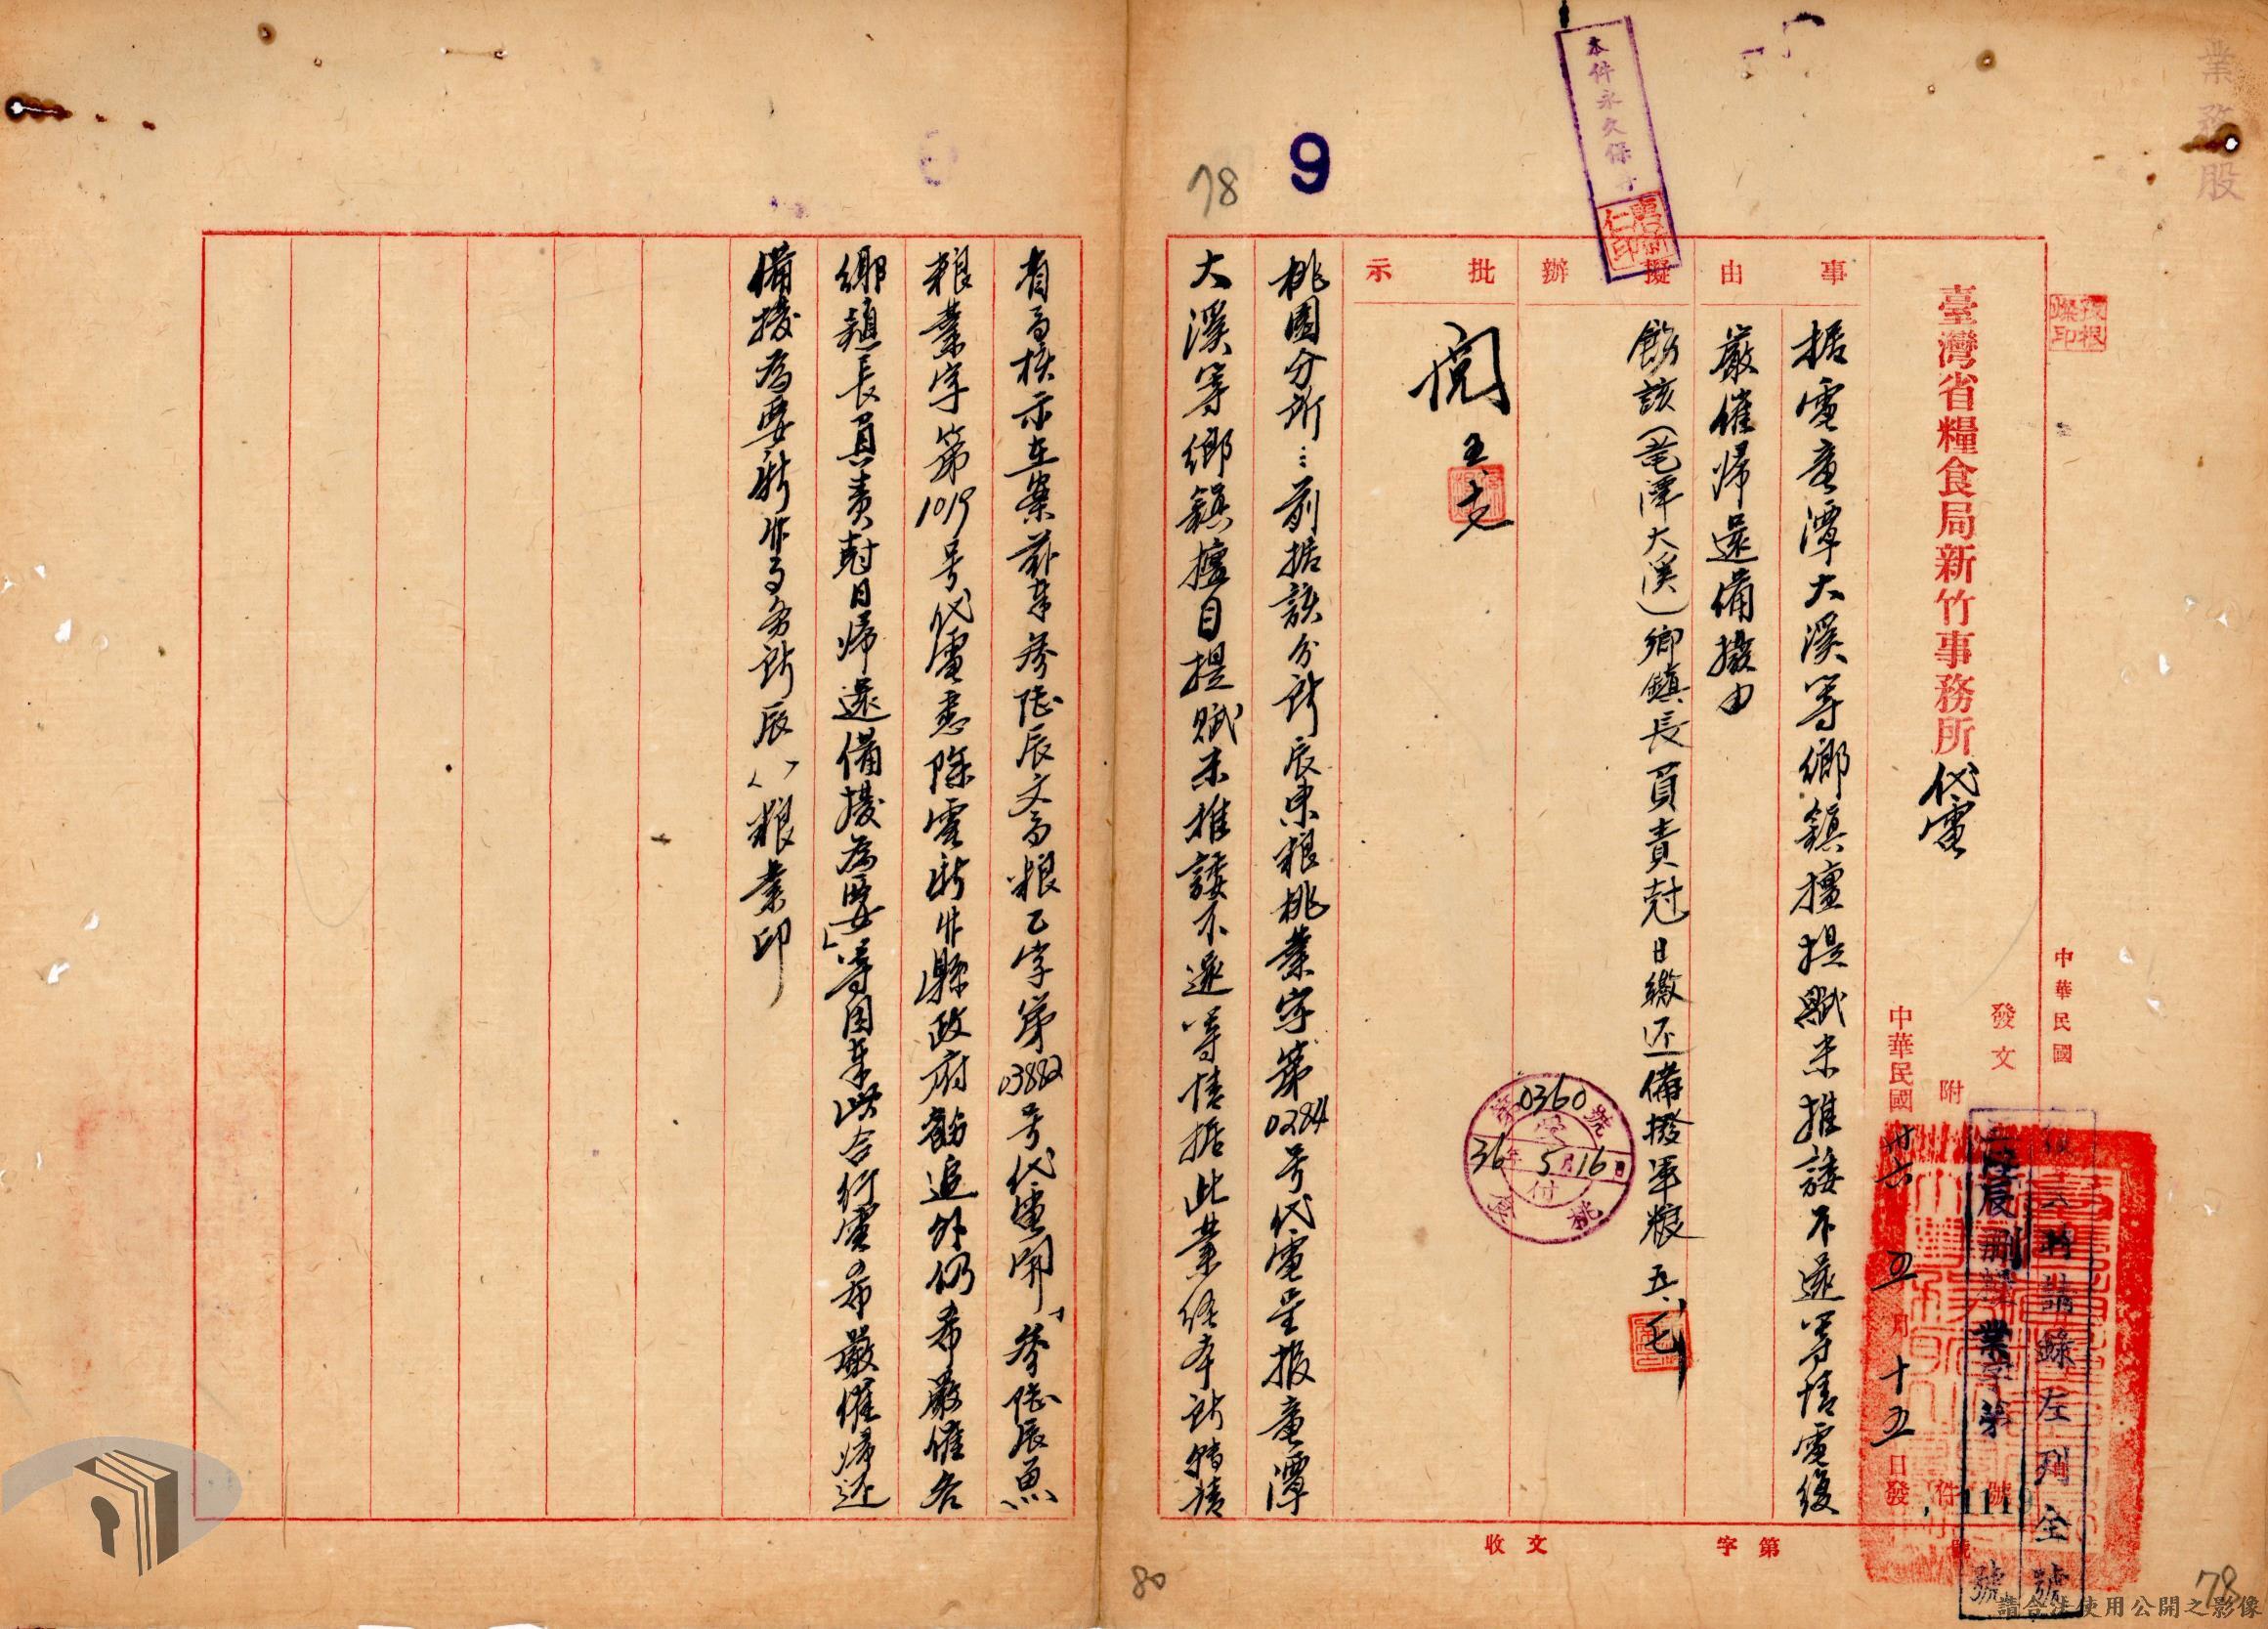 業務股
本件永久保
9
78
中華民國
臺灣省糧食局新竹事務所代電
發文
附件
號
中華民國卅六五月十五日發
復時請錄左列全號
業字第
111
號
事由
據電龍潭大溪等鄉鎮擅提賦米推諉不還等情電復
嚴催歸還備撥由
擬辦
飭該(竜潭大溪)鄉鎮長負責尅日繳还備撥軍粮
批示
閱
第0360號
36年5月16日
收文
字第
號
桃園分所:前据該分所辰東粮桃業字第0284号代電呈报竜潭
大溪等鄉鎮擅自提賦米推諉不還等情据此業経本所轉請
省局核示在案茲奉叁陸辰文局粮乙字第03882号代電開「叁陸辰魚
粮業字第1019号代電悉除電新竹縣政府飭追外仍希嚴催各
鄉鎮長負責尅日歸還備撥為要」等因奉此合行電希嚴催歸还
備撥為要新竹事务所辰 粮業印
80
78
請合法使用公開之影像